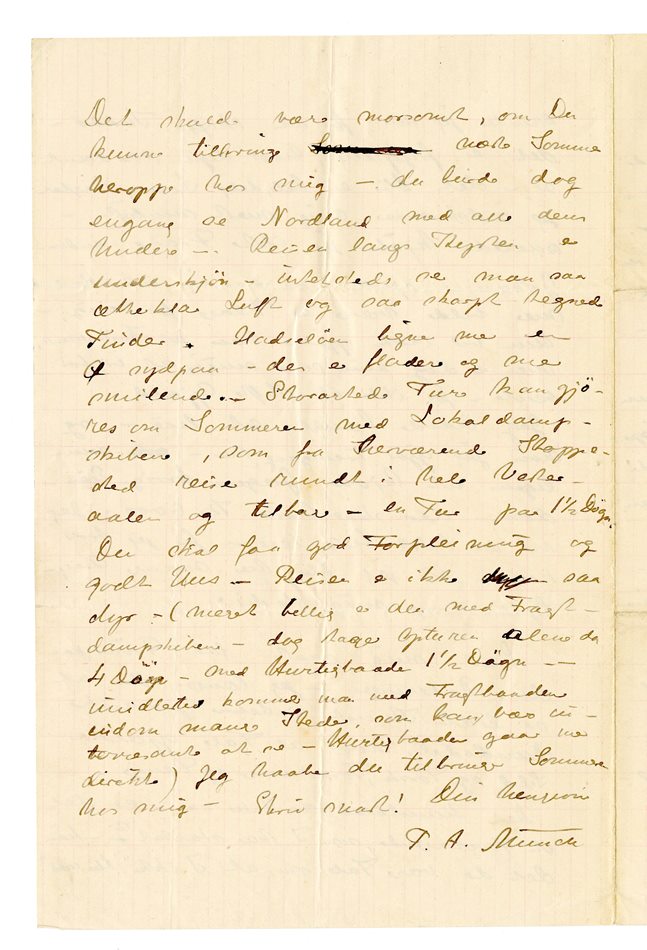 Det skulde være morsomt, om Du
kunne tilbringe næste Sommer
heroppe hos mig – du burde dog
engang se Nordland med alle dens
Undere – Reisen langs Kysten e
underskjøn – intetsteds se man saa
Luft og saa skarpt tegnede
Tinder. Hadseløen ligne me en
Ø sydpaa – den e fladere og me
smilende. – Storartede Ture kan gjö-
res om Sommeren med Lokaldamp-
skibene, som fra herværende Stoppe-
sted reise rundt i hele Vester-
aalen og tilbage – en Tur paa 1½ Døgn.
Du skal faa god Forpleining og
godt Hus – Reisen e ikke saa
dyr – (meget billig e den med Fragt-
dampskibene – dog tage Opturen alene da
4 Døgn – med Hurtigbaade 1½ Døgn –
imidlertid komme man med Fragtbaaden
indom mange Steder, som kan være in-
teressante at se – Hurtigbaaden gaar me
direkte) Jeg haabe du tilbringe Sommeren
hos mig – Skriv snart! Din hengivne
P. A. Munch